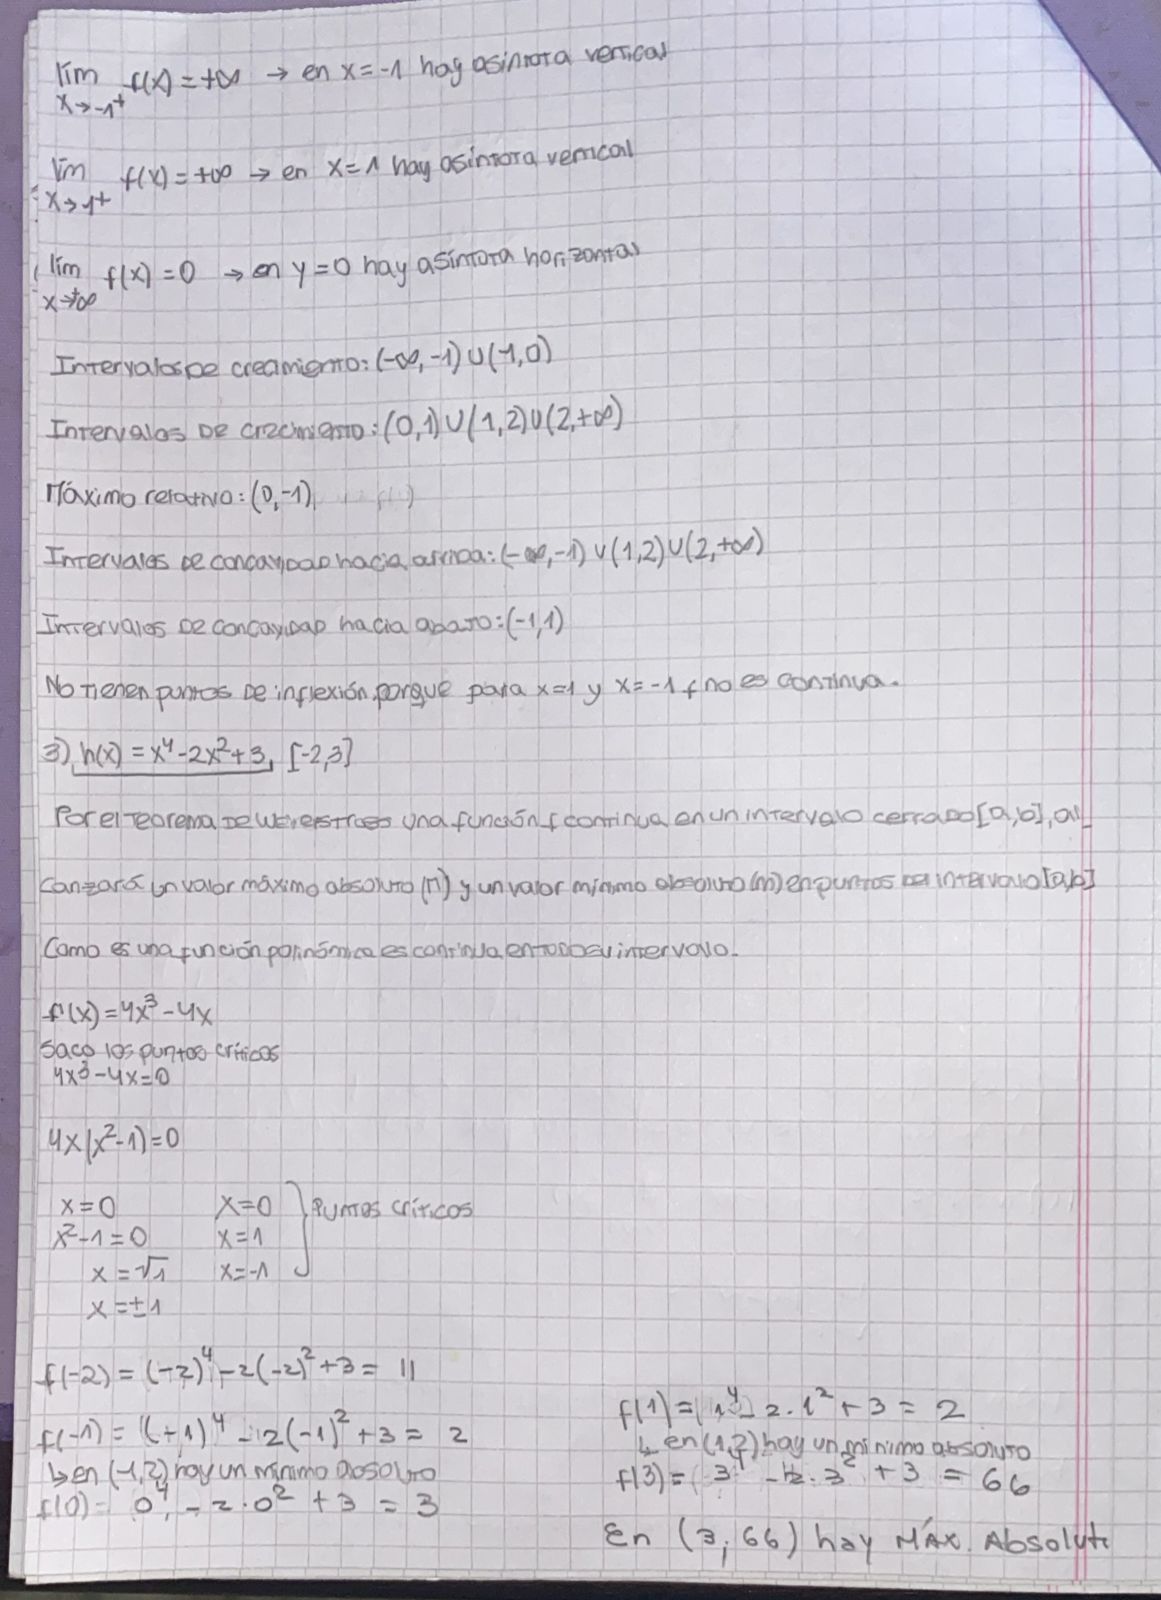 lim f(x) = +∞ → en x = -1 hay asíntota vertical
x→-1⁺
lim f(x) = +∞ → en x = 1 hay asíntota vertical
x→1⁺
lim f(x) = 0 → en y = 0 hay asíntota horizontal
x→±∞
Intervalos de crecimiento: (-∞, -1) ∪ (-1, 0)
Intervalos de crecimiento: (0, 1) ∪ (1, 2) ∪ (2, +∞)
Máximo relativo: (0, -1)
Intervalos de concavidad hacia arriba: (-∞, -1) ∪ (1, 2) ∪ (2, +∞)
Intervalos de concavidad hacia abajo: (-1, 1)
No tienen puntos de inflexión porque para x = 1 y x = -1 f no es continua.
3) h(x) = x⁴ - 2x² + 3, [-2, 3]
Por el Teorema de una función f continua en un intervalo cerrado [a, b], al
canzará un valor máximo absoluto (M) y un valor mínimo absoluto (m) en puntos del intervalo [a, b]
Como es una función polinómica es continua en todo su intervalo.
f'(x) = 4x³ - 4x
Saco los puntos críticos
4x³ - 4x = 0
4x (x² - 1) = 0
x = 0 x = 0 } Puntos críticos
x² - 1 = 0 x = 1
x = √1 x = -1
x = ±1
f(-2) = (-2)⁴ - 2(-2)² + 3 = 11
f(-1) = (-1)⁴ - 2(-1)² + 3 = 2
↳ en (-1, 2) hay un mínimo absoluto
f(0) = 0⁴ - 2·0² + 3 = 3
f(1) = 1⁴ - 2·1² + 3 = 2
↳ en (1, 2) hay un mínimo absoluto
f(3) = 3⁴ - 2·3² + 3 = 66
En (3, 66) hay MÁX. Absoluto